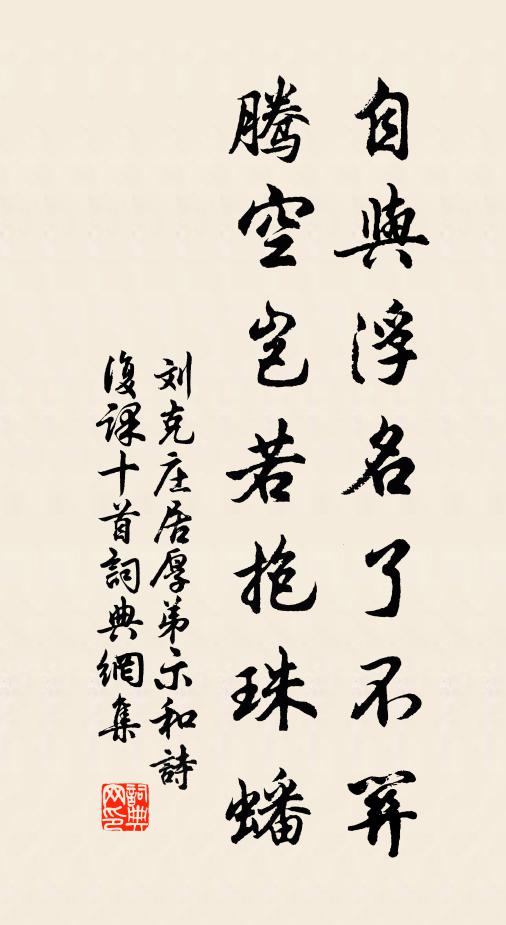 自與浮名了不關
騰空豈若抱珠蟠
刘克庄居厚弟示和詩
復課十首詞典網集
詞典
网印